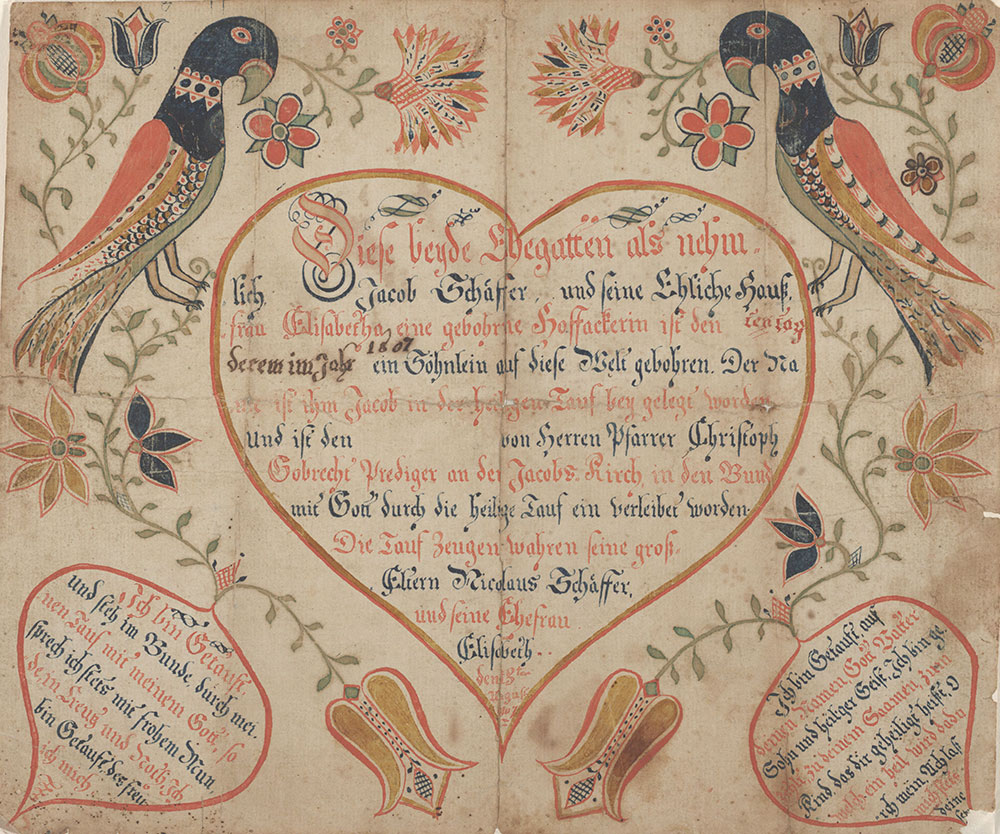 Diese beyde Ehegatten als nehm-
lich Jacob Schäffer, und seine Ehliche Hauß,
frau Elisabetha eine gebohrne Haffackerin ist den ten tag
decem im Jahr 1807 ein Söhnlein auf diese Welt gebohren. Der Na
me ist ihm Jacob in der heiligen Tauf bey gelegt worden
Und ist den von Herren Pfarrer Christoph
Gobrecht Prediger an der Jacobs Kirch in den Bund
mit Gott durch die heilige Tauf ein verleibet worden.
Die Tauf Zeugen wahren seine groß-
Eltern Nicolaus Schäffer,
und seine Ehefrau
Elisabeth
den
Ich bin Getauft,
und steh im Bunde, durch mei-
nen Tauf mit meinem Gott, so
sprech ich stets mit frohem Mun
de, in Creutz und Noth, Ich
bin Getauft des freu
ich mich
Ich bin Getauft, auf
deinen Namen Gott Vatter
Sohn und heiliger Geist, Ich bin ge-
zehlt zu deinem Saamen, zum
Kind, das dir geheiligt heißt, O
welch ein heil wird dadu
rch mein Ach laß
deine